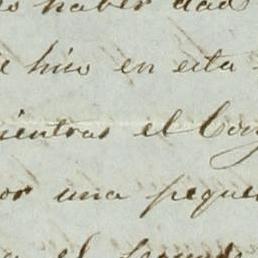 haber dad
hizo en esta
ientras el Coro
or una peque
el segundo